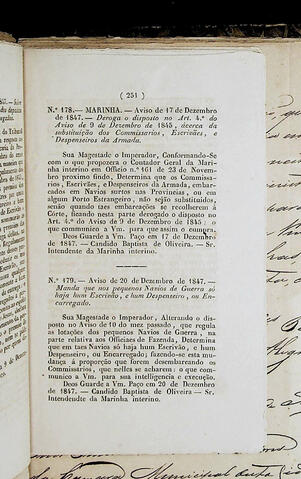 ( 251 )
N.º 178.— MARINHA. — Aviso de 17 de Dezembro
de 1847. — Deroga o disposto no Art. 4.º do
Aviso de 9 de Dezembro de 1845, ácerca da
substituição dos Commissarios, Escrivães, e
Despenseiros da Armada.
Sua Magestade o Imperador, Conformando-Se
com o que propozera o Contador Geral da Marinha
interino em Officio n.º 161 de 23 de Novembro
proximo findo, Determina que os Commissarios,
Escrivães, e Despenseiros da Armada, embarcados
em Navios surtos nas Provincias, ou em
algum Porto Estrangeiro, não sejão substituidos,
senão quando taes embarcações se recolherem á
Côrte, ficando nesta parte derogado o disposto no
Art. 4.º do Aviso de 9 de Dezembro de 1845: o
que communico a Vm. para que assim o cumpra.
Deos Guarde a Vm. Paço em 17 de Dezembro
de 1847. — Candido Baptista de Oliveira. — Sr.
Intendente da Marinha interino.
N.º 179. — Aviso de 20 de Dezembro de 1847. —
Manda que nos pequenos Navios de Guerra só
haja hum Escrivão, e hum Despenseiro, ou Encarregado.
Sua Magestade o Imperador, Alterando o disposto
no Aviso de 10 do mez passado, que regula
as lotações dos pequenos Navios de Guerra, na
parte relativa aos Officiaes de Fazenda, Determina
que em taes Navios só haja hum Escrivão, e hum
Despenseiro, ou Encarregado; fazendo-se esta mudança
á proporção que forem desembarcando os
Commissarios, que nelles se acharem: o que communico
a Vm. para sua intelligencia e execução.
Deos Guarde a Vm. Paço em 20 de Dezembro
de 1847. — Candido Baptista de Oliveira — Sr.
Intendente da Marinha interino.